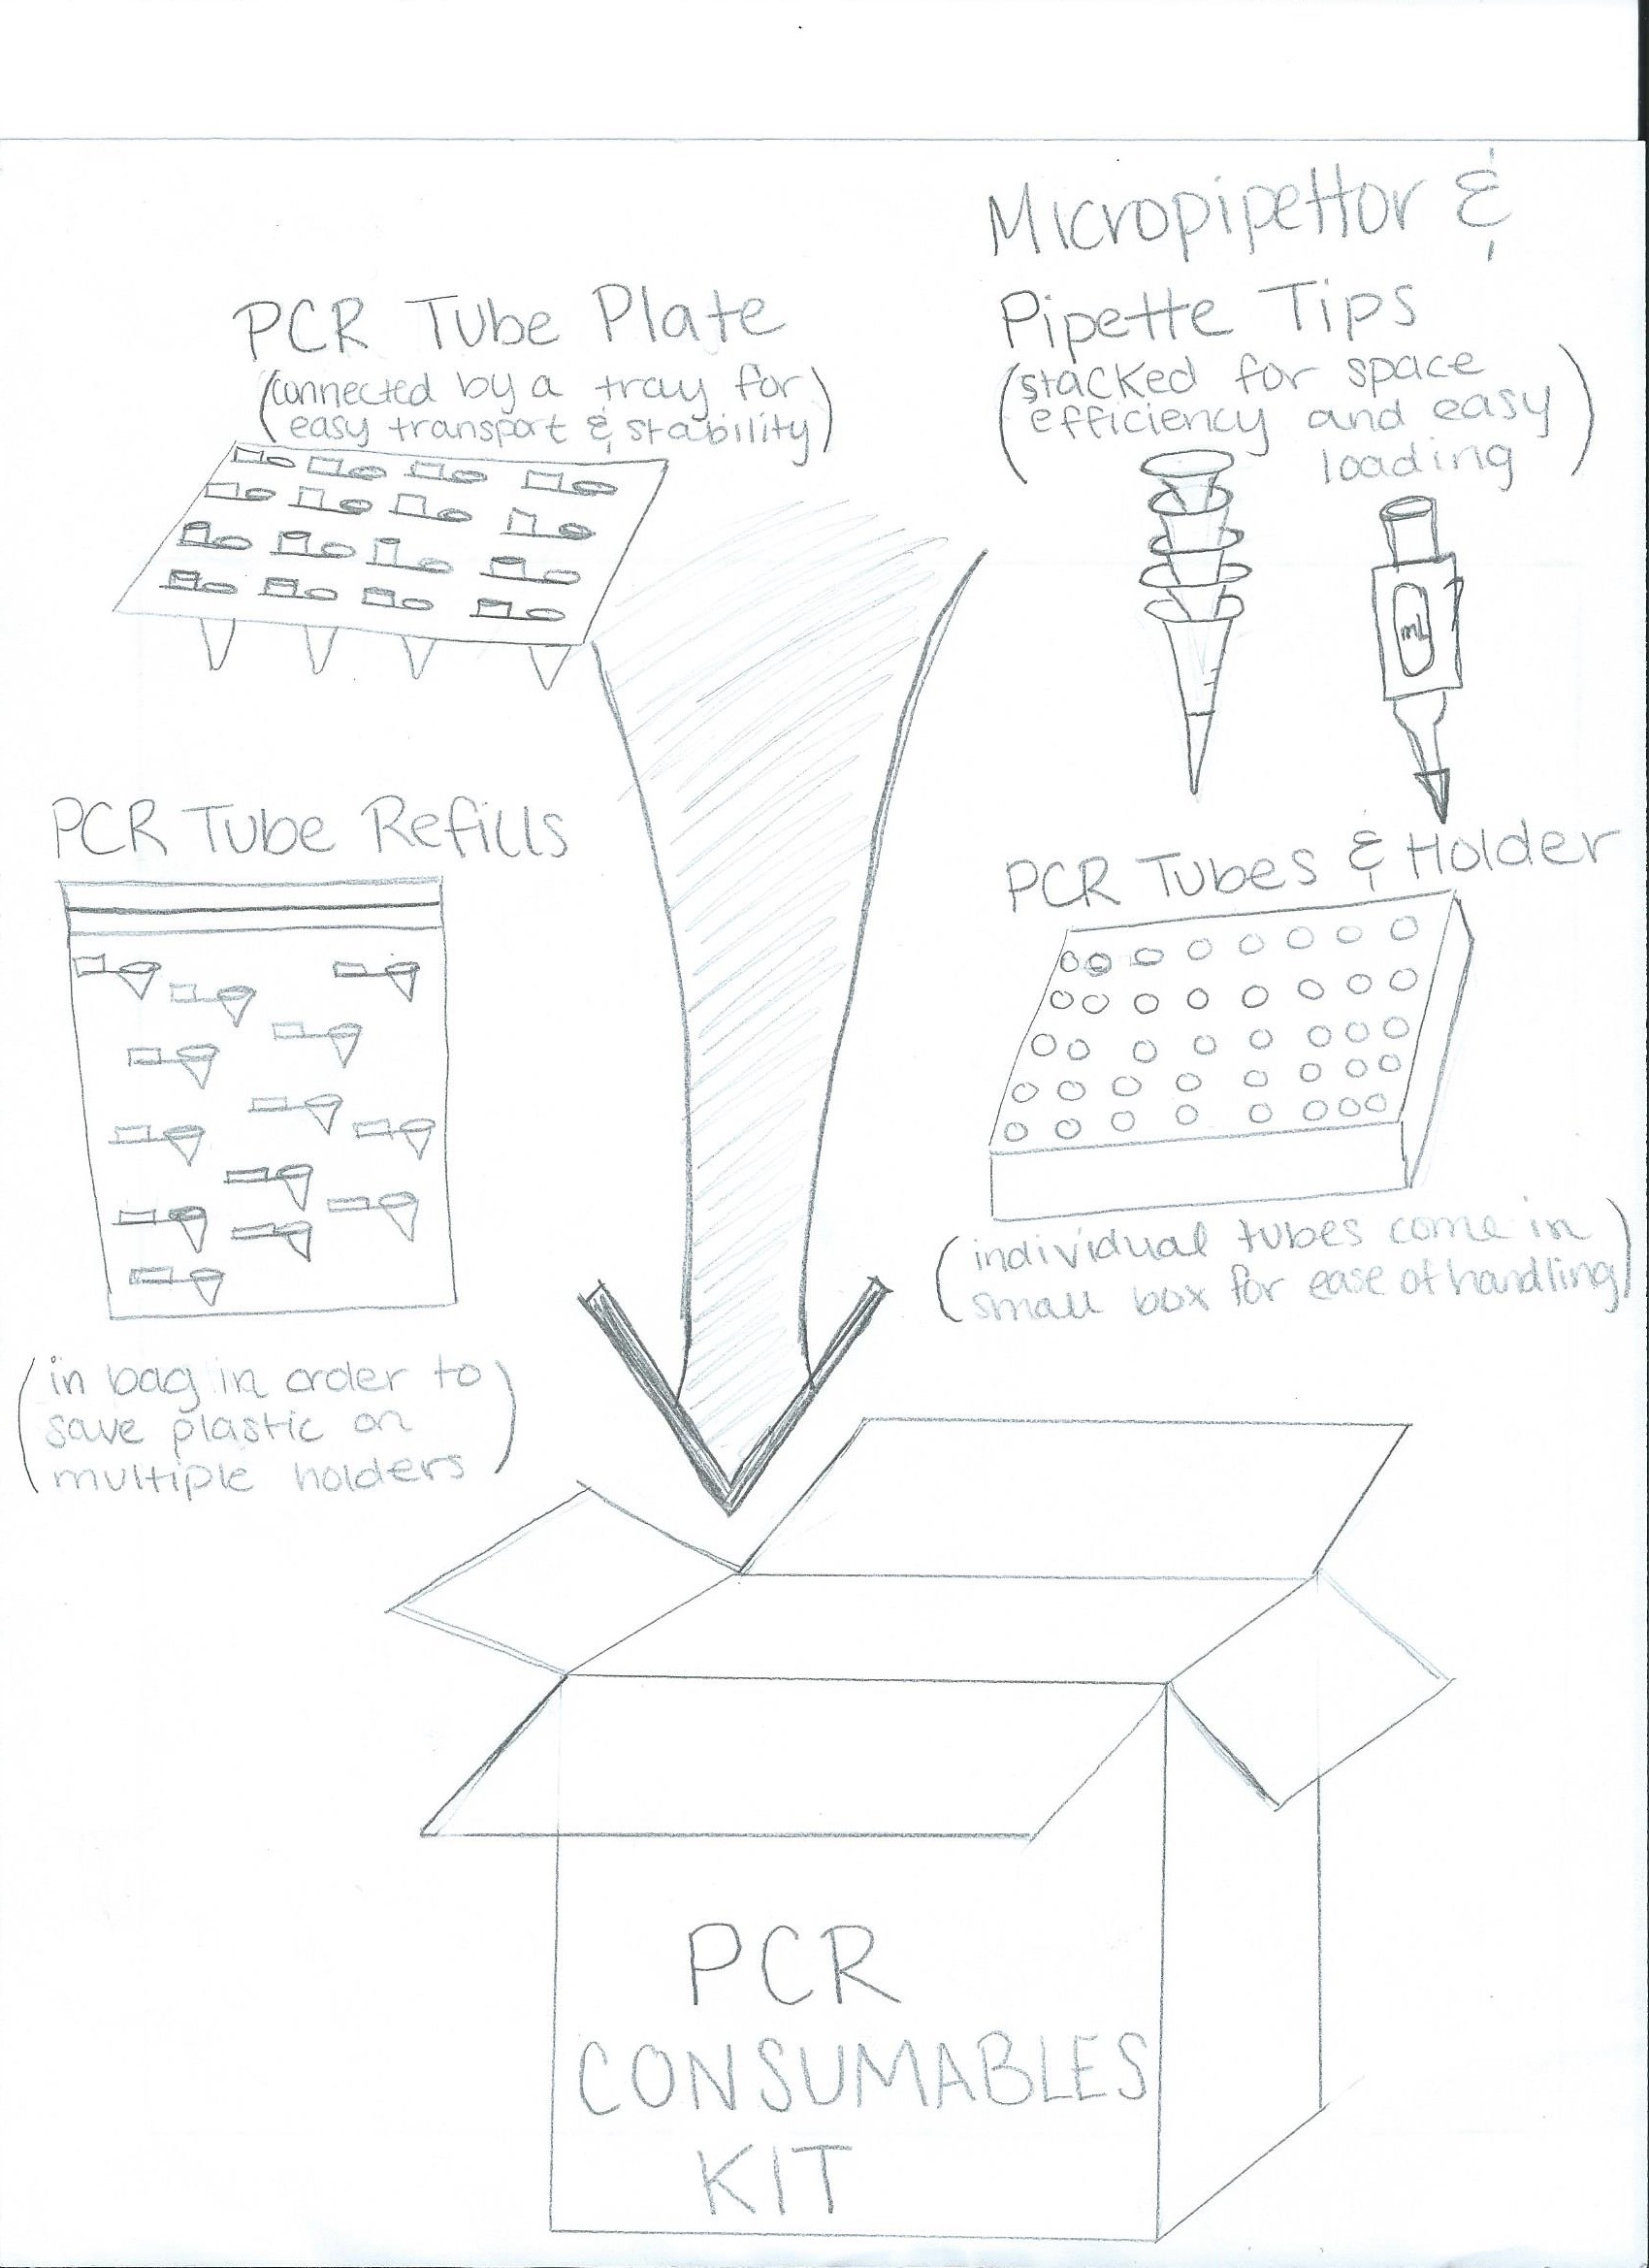 Micropipettor &
Pipette Tips
(stacked for space
efficiency and easy
loading)
mL
PCR Tube Plate
(connected by a tray for
easy transport & stability)
PCR Tube Refills
(in bag in order to
save plastic on
multiple holders)
PCR Tubes & Holder
(individual tubes come in
small box for ease of handling)
PCR
CONSUMABLES
KIT